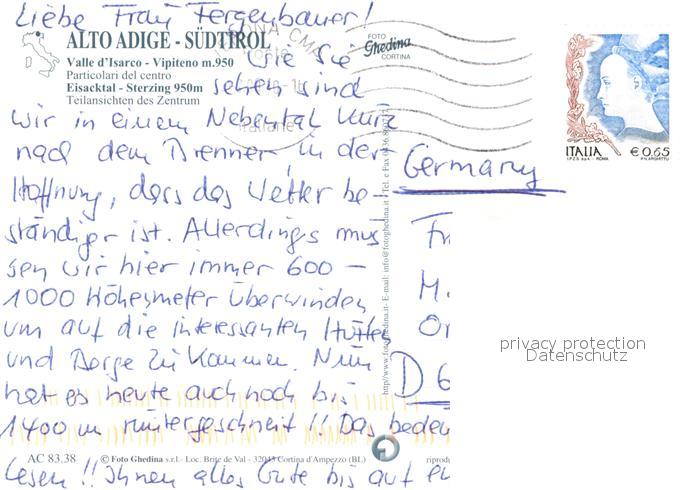 Liebe Frau Fergenbauer!
ALTO ADIGE - SÜDTIROL
Valle d'Isarco - Vipiteno m.950
Particolari del centro
Eisacktal - Sterzing 950m
Teilansichten des Zentrum
FOTO
Ghedina
CORTINA
ITALIA
€ 0,65
I.P.Z.S. - ROMA
Wie Sie
sehen sind
wir in einem Nebental kurz
nach dem Brenner, in der
Hoffnung, dass das Wetter be-
ständiger ist. Allerdings müs
sen wir hier immer 600 -
1000 Höhenmeter überwinden
um auf die interessanten Hütten
und Berge zu kommen. Nun
hat es heute auch noch bis
1400 m runtergeschneit!! Das bedeu
lesen!! Ihnen alles Gute bis auf
Germany
Fr
M.
Or
D 6
privacy protection
Datenschutz
AC 83.38
© Foto Ghedina s.r.l.- Loc. Brite de Val - 32043 Cortina d'Ampezzo (BL)
reprodu
http//www.fotoghedina.it- E-mail: info@fotoghedina.it